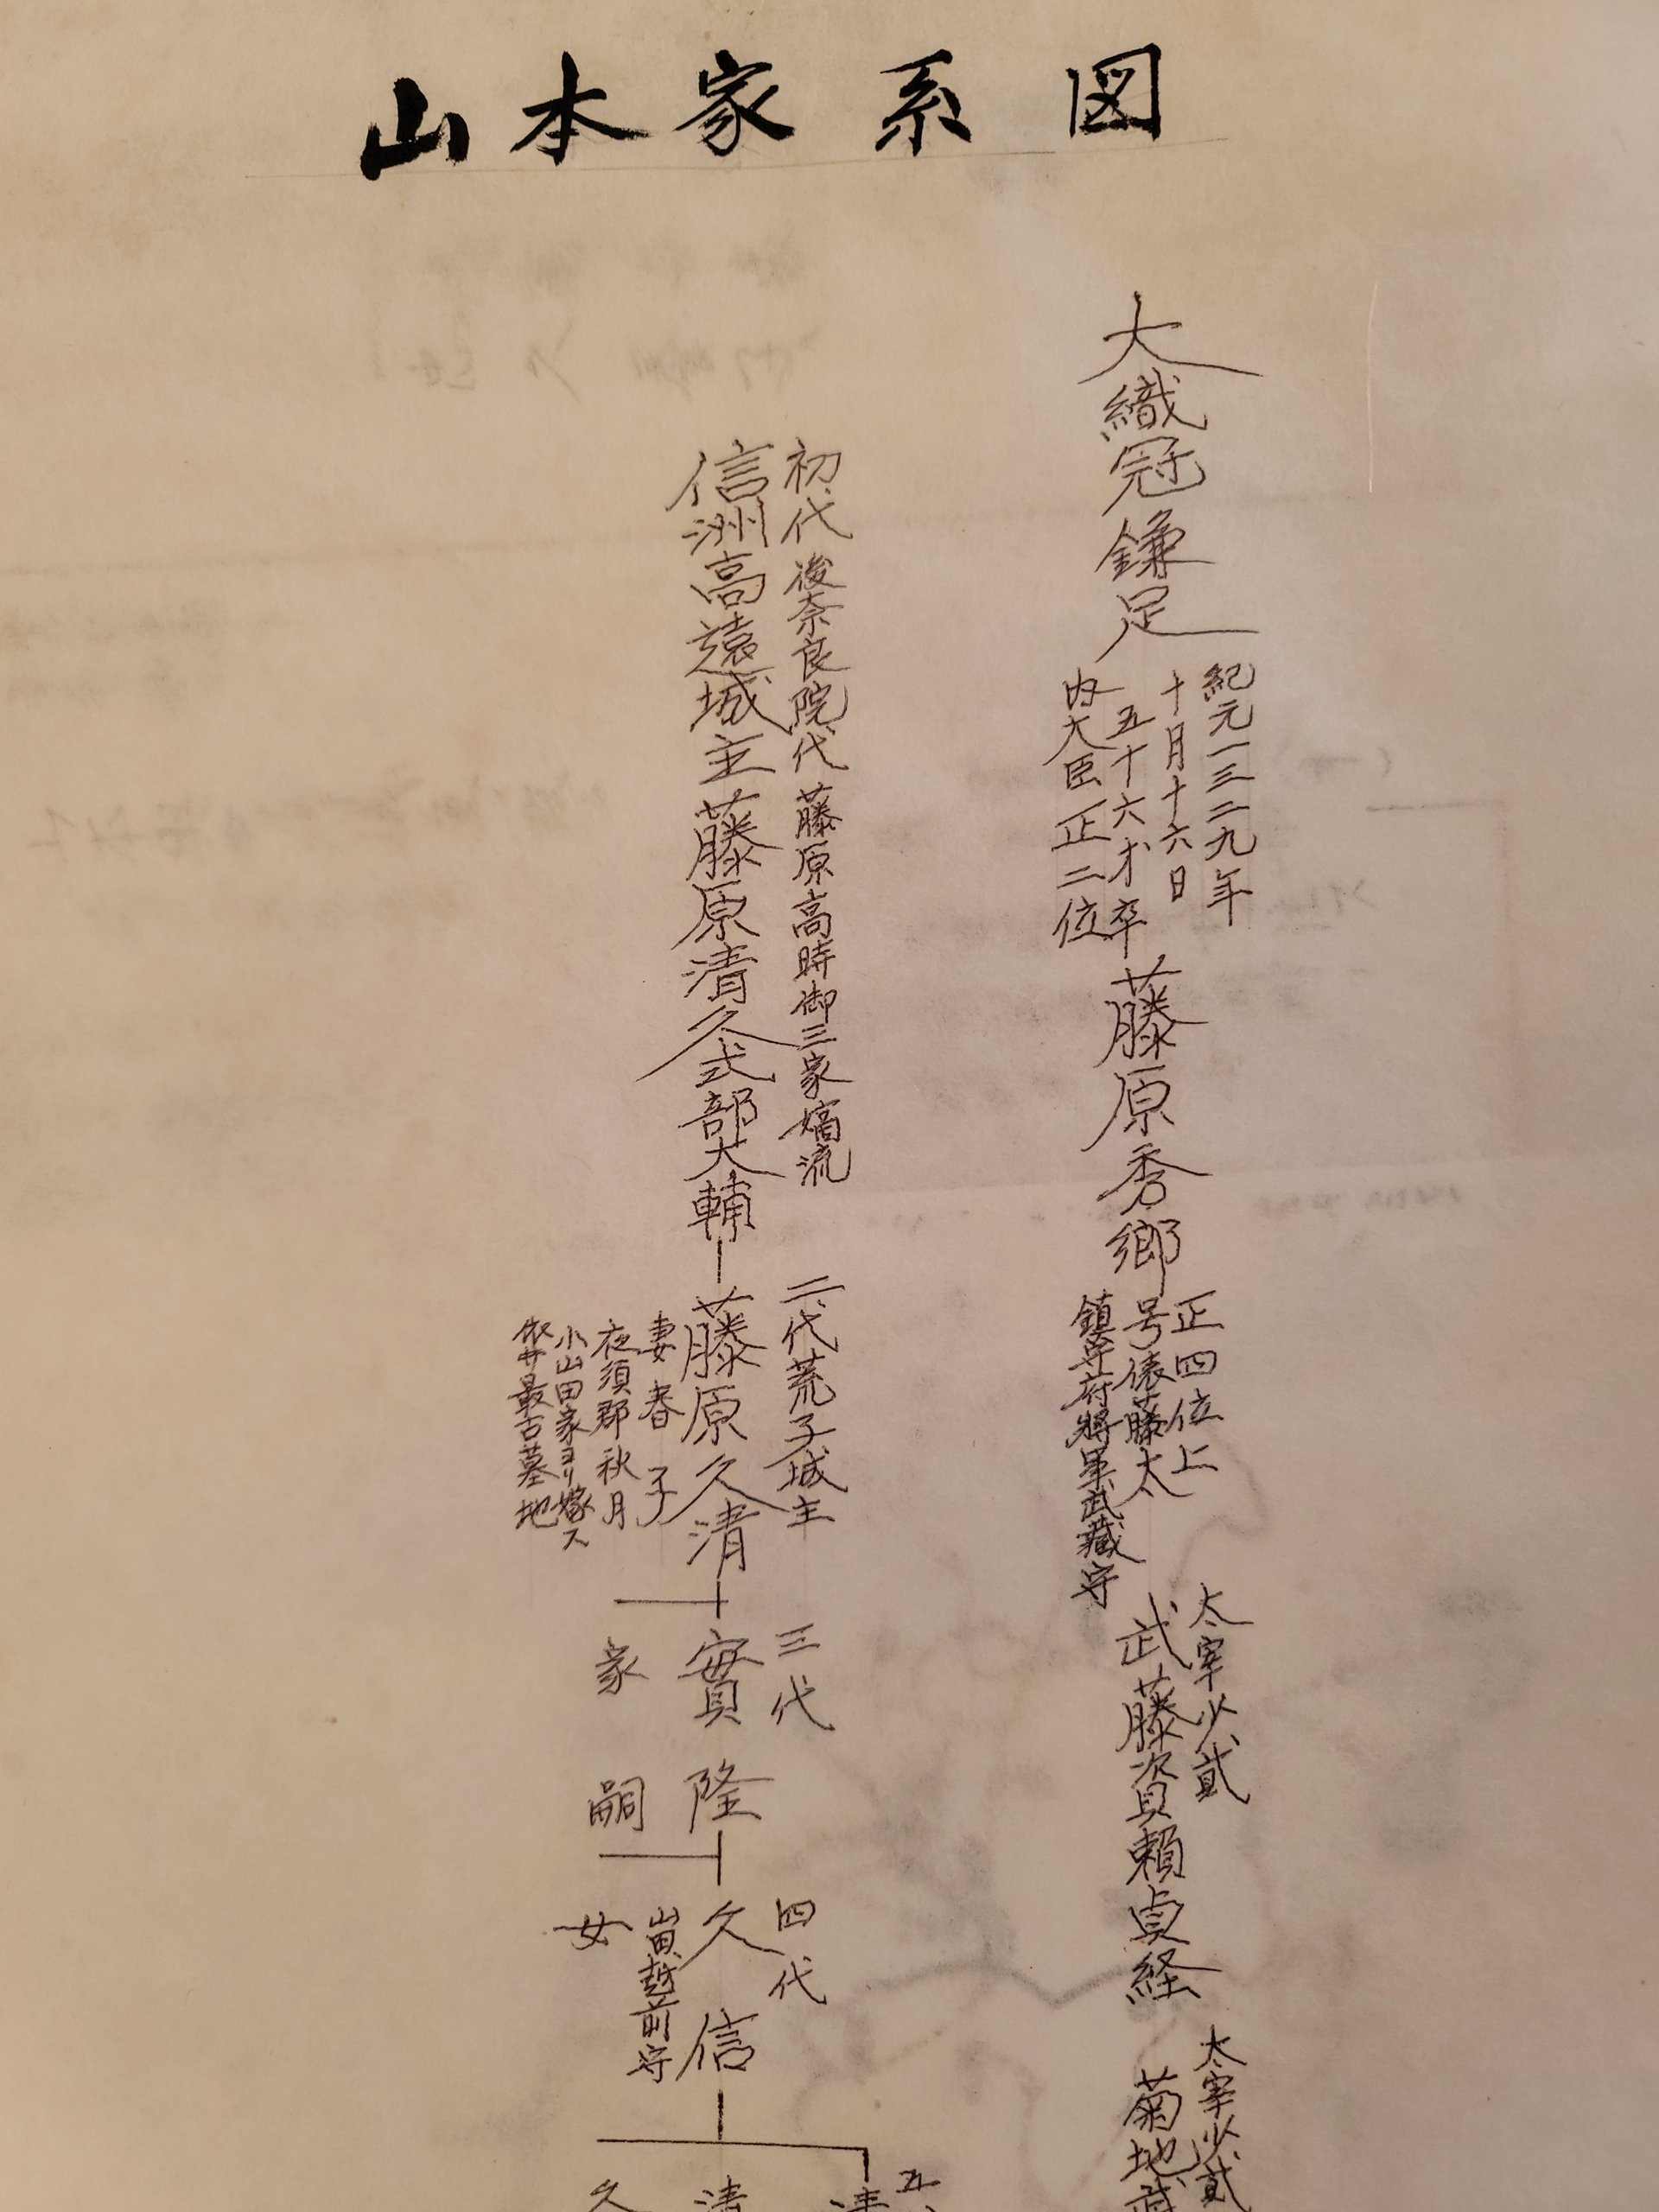 山本家系図
大織冠鎌足
紀元一三二九年
十月十六日
五十六才卒
内大臣正二位
藤原秀郷
正四位上
号俵藤太
鎮守府将軍武蔵守
太宰少貳
武藤資頼貞経
太宰少貳
菊地武
初代後奈良院代藤原高時御三家嫡流
信洲高遠城主藤原清久式部大輔
二代荒子城主
藤原久清
妻春子
夜須郡秋月
小山田家ヨリ嫁ス
最古墓地
三代
實隆
家嗣
四代
久信
山田越前守
女
五
清
清
久